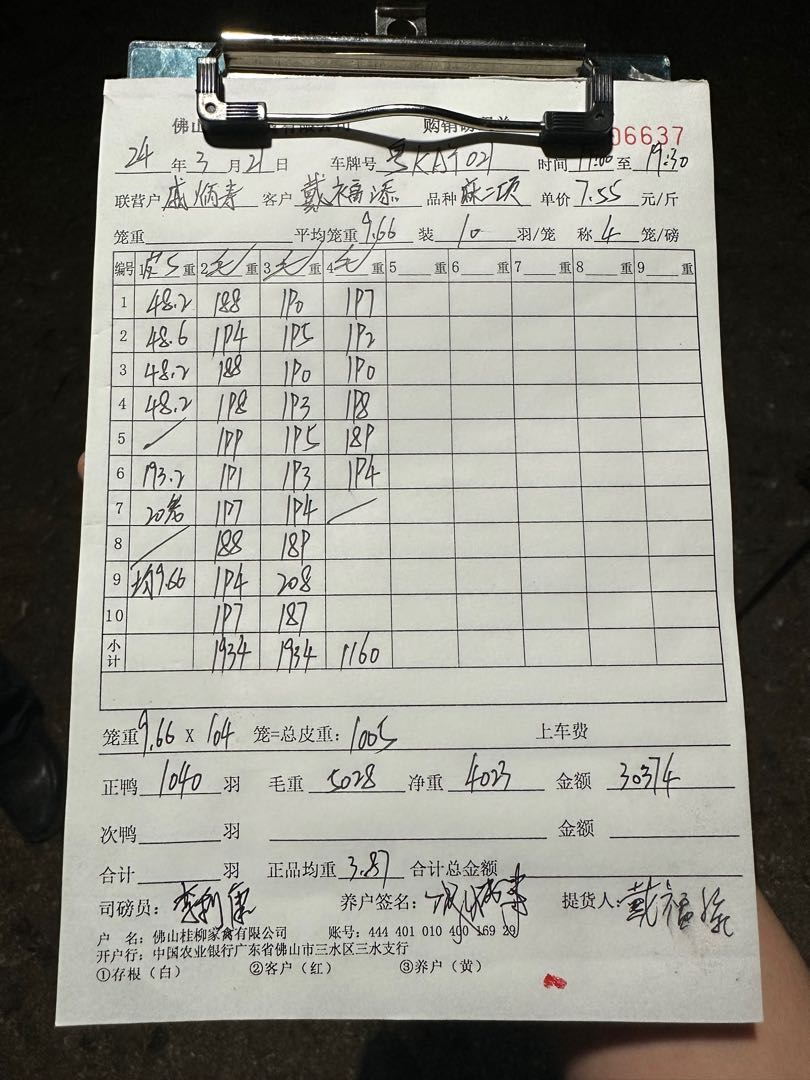 佛山 购销
06637
24 年 3 月 21 日 车牌号 时间 17:00 至 19:30
联营户 戚炳寿 客户 戴福添 品种 麻二项 单价 7.55 元/斤
笼重 平均笼重 9.66 装 10 羽/笼 称 4 笼/磅
编号 1 皮5 重 2 毛 重 3 毛 重 4 毛 重 5 重 6 重 7 重 8 重 9 重
1 48.2 188 190 197
2 48.6 194 195 192
3 48.2 188 190 190
4 48.2 198 193 198
5 199 195 189
6 193.2 191 193 194
7 20 197 194
8 188 189
9 均9.66 194 208
10 197 187
小计 1934 1934 1160
笼重 9.66 X 104 笼=总皮重: 1005 上车费
正鸭 1040 羽 毛重 5028 净重 4023 金额 30374
次鸭 羽 金额
合计 羽 正品均重 3.87 合计总金额
司磅员: 李利 养户签名: 戚炳寿 提货人: 戴福添
户 名: 佛山桂柳家禽有限公司 账号: 444 401 010 400 169 29
开户行: 中国农业银行广东省佛山市三水区三水支行
①存根(白) ②客户(红) ③养户(黄)